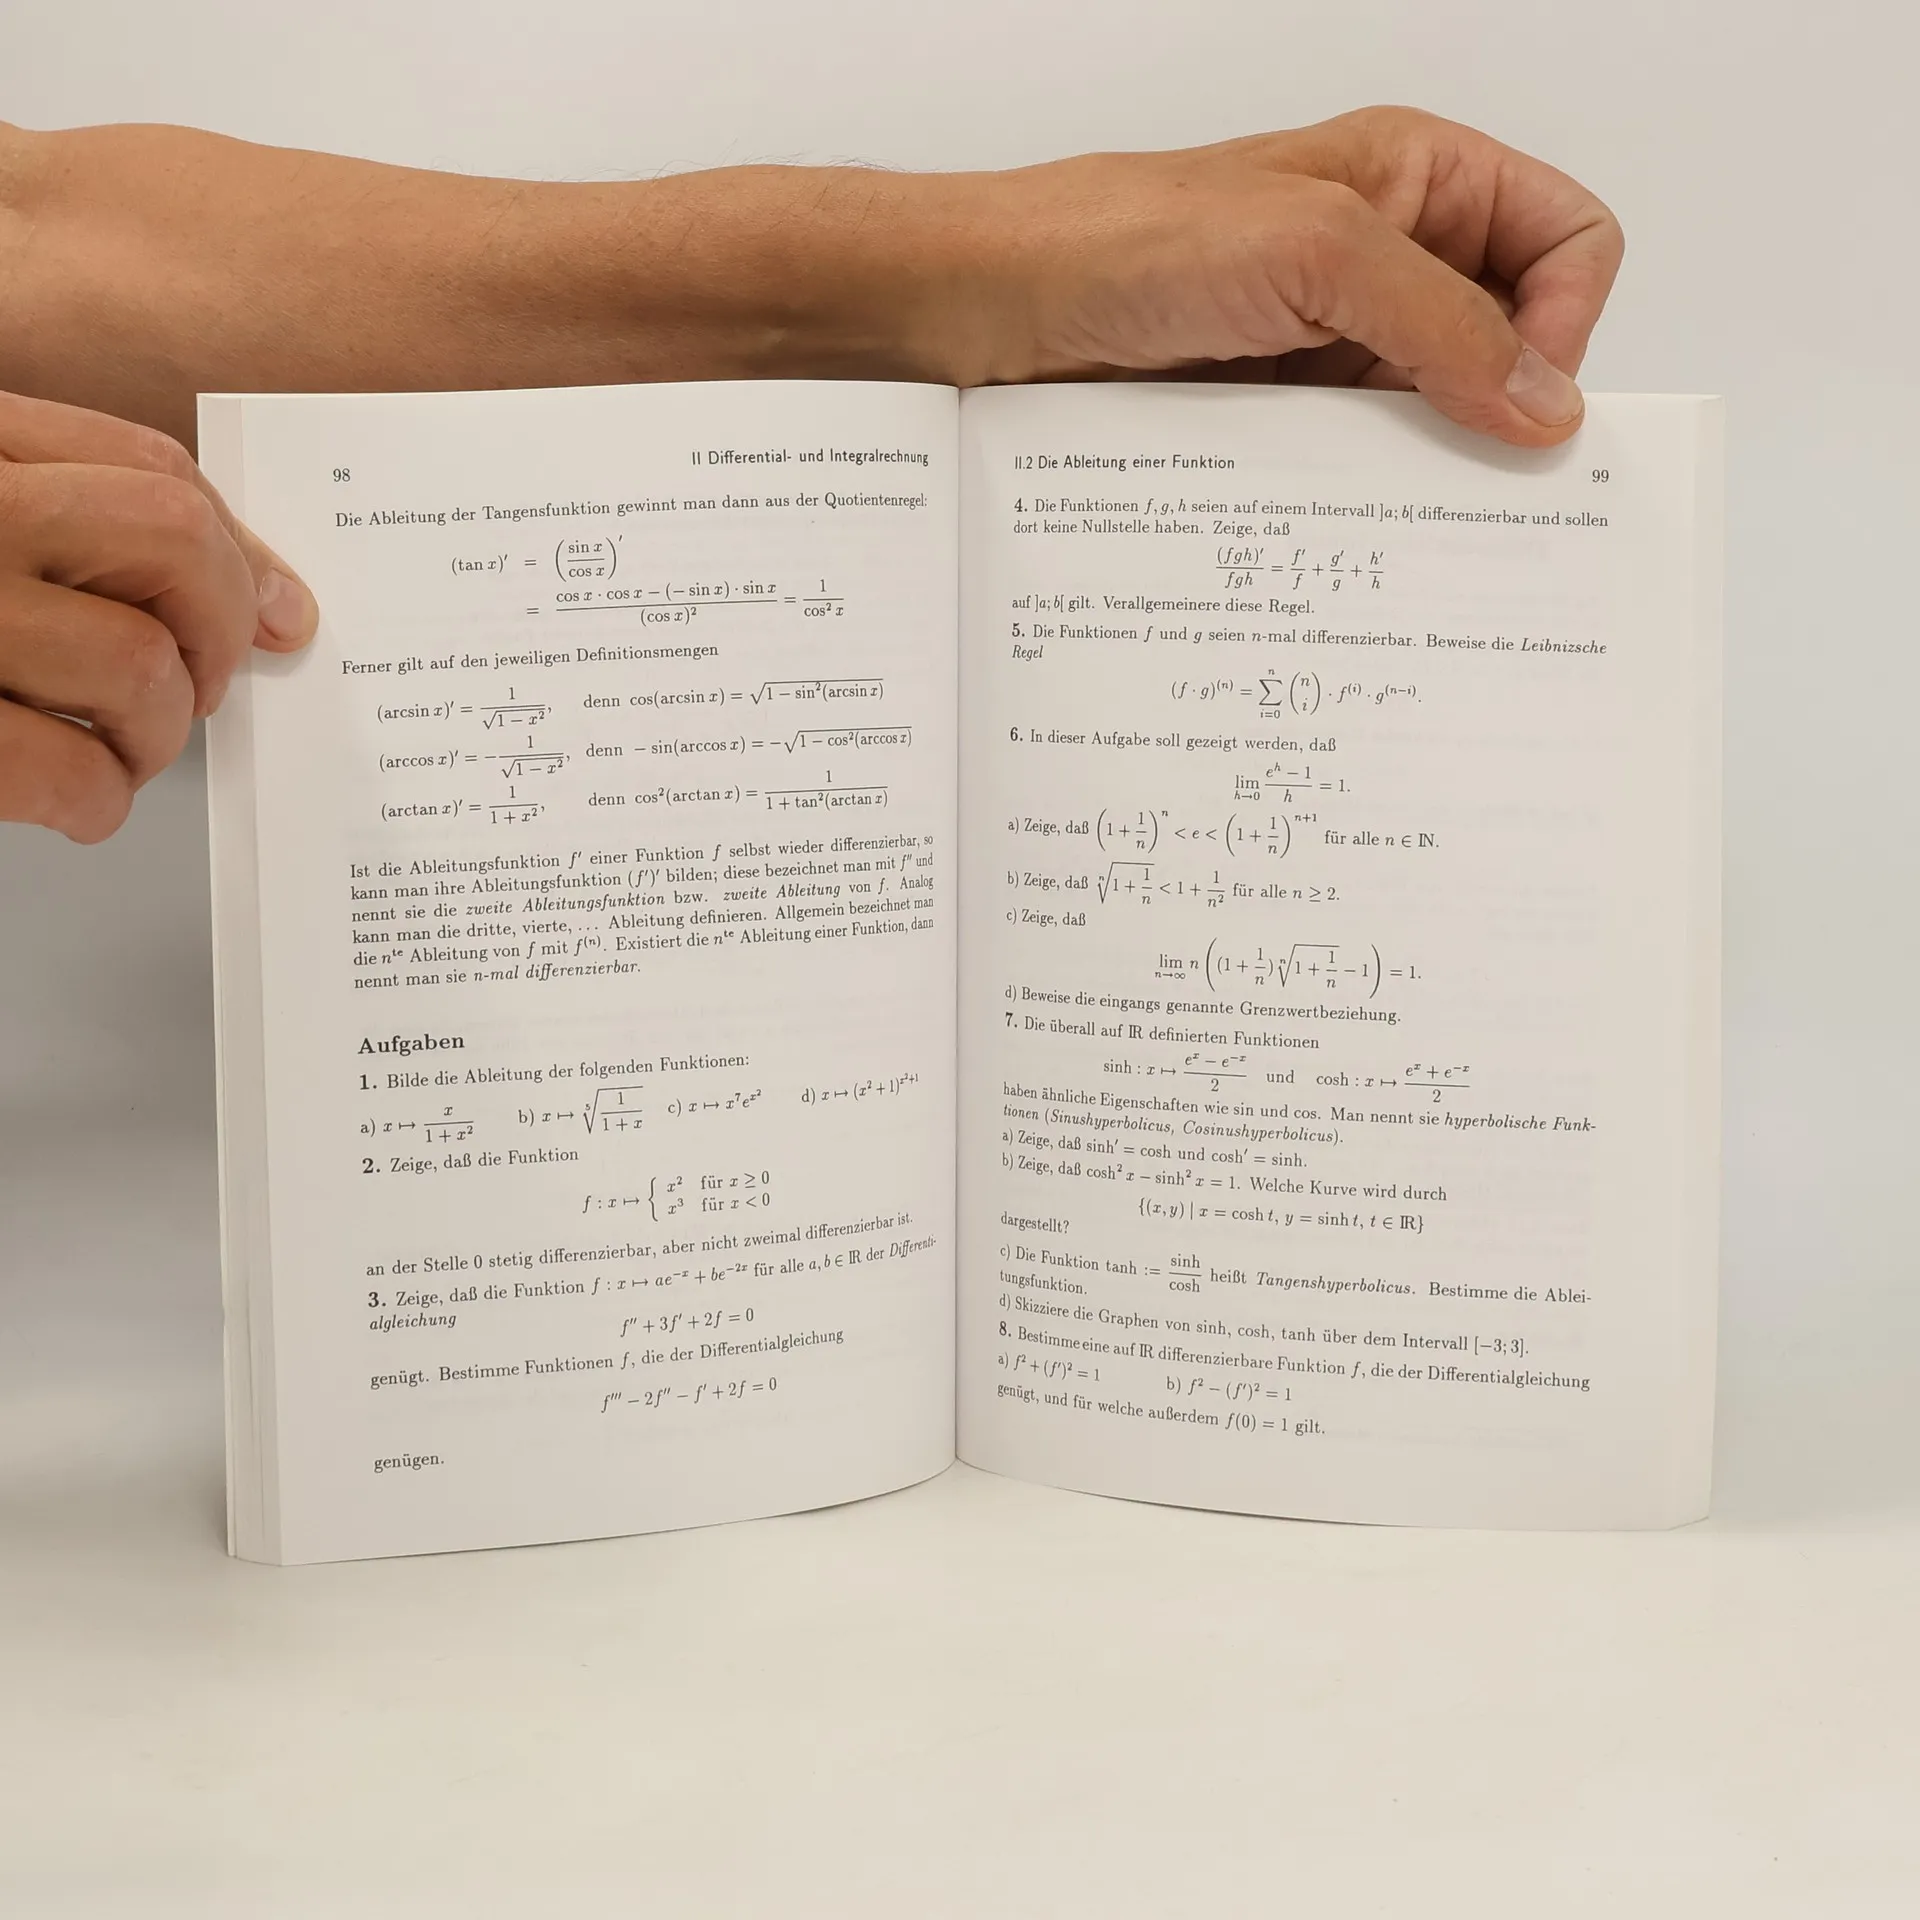 98
II Differential- und Integralrechnung
Die Ableitung der Tangensfunktion gewinnt man dann aus der Quotientenregel:
(tan x)′ = (sin x / cos x)′
= (cos x · cos x − (− sin x) · sin x) / (cos x)² = 1 / cos² x
Ferner gilt auf den jeweiligen Definitionsmengen
(arcsin x)′ = 1 / √(1 − x²), denn cos(arcsin x) = √(1 − sin²(arcsin x))
(arccos x)′ = − 1 / √(1 − x²), denn − sin(arccos x) = −√(1 − cos²(arccos x))
(arctan x)′ = 1 / (1 + x²), denn cos²(arctan x) = 1 / (1 + tan²(arctan x))
Ist die Ableitungsfunktion f′ einer Funktion f selbst wieder differenzierbar, so
kann man ihre Ableitungsfunktion (f′)′ bilden; diese bezeichnet man mit f″ und
nennt sie die zweite Ableitungsfunktion bzw. zweite Ableitung von f. Analog
kann man die dritte, vierte, ... Ableitung definieren. Allgemein bezeichnet man
die nᵗᵉ Ableitung von f mit f⁽ⁿ⁾. Existiert die nᵗᵉ Ableitung einer Funktion, dann
nennt man sie n-mal differenzierbar.
Aufgaben
1. Bilde die Ableitung der folgenden Funktionen:
a) x ↦ x / (1 + x²) b) x ↦ ⁵√(1 / (1 + x)) c) x ↦ x⁷e^(x²) d) x ↦ (x² + 1)^(x²+1)
2. Zeige, daß die Funktion
f : x ↦ { x² für x ≥ 0
x³ für x < 0
an der Stelle 0 stetig differenzierbar, aber nicht zweimal differenzierbar ist.
3. Zeige, daß die Funktion f : x ↦ ae^(−x) + be^(−2x) für alle a, b ∈ ℝ der Differenti-
algleichung
f″ + 3f′ + 2f = 0
genügt. Bestimme Funktionen f, die der Differentialgleichung
f‴ − 2f″ − f′ + 2f = 0
genügen.
II.2 Die Ableitung einer Funktion
99
4. Die Funktionen f, g, h seien auf einem Intervall ]a; b[ differenzierbar und sollen
dort keine Nullstelle haben. Zeige, daß
(fgh)′ / fgh = f′/f + g′/g + h′/h
auf ]a; b[ gilt. Verallgemeinere diese Regel.
5. Die Funktionen f und g seien n-mal differenzierbar. Beweise die Leibnizsche
Regel
(f · g)⁽ⁿ⁾ = ∑_{i=0}^{n} (n i) · f⁽ⁱ⁾ · g⁽ⁿ⁻ⁱ⁾.
6. In dieser Aufgabe soll gezeigt werden, daß
lim_{h→0} (eʰ − 1) / h = 1.
a) Zeige, daß (1 + 1/n)ⁿ < e < (1 + 1/n)ⁿ⁺¹ für alle n ∈ ℕ.
b) Zeige, daß ⁿ√(1 + 1/n) < 1 + 1/n² für alle n ≥ 2.
c) Zeige, daß
lim_{n→∞} n ((1 + 1/n) ⁿ√(1 + 1/n) − 1) = 1.
d) Beweise die eingangs genannte Grenzwertbeziehung.
7. Die überall auf ℝ definierten Funktionen
sinh : x ↦ (eˣ − e⁻ˣ) / 2 und cosh : x ↦ (eˣ + e⁻ˣ) / 2
haben ähnliche Eigenschaften wie sin und cos. Man nennt sie hyperbolische Funk-
tionen (Sinushyperbolicus, Cosinushyperbolicus).
a) Zeige, daß sinh′ = cosh und cosh′ = sinh.
b) Zeige, daß cosh² x − sinh² x = 1. Welche Kurve wird durch
{(x, y) | x = cosh t, y = sinh t, t ∈ ℝ}
dargestellt?
c) Die Funktion tanh := sinh / cosh heißt Tangenshyperbolicus. Bestimme die Ablei-
tungsfunktion.
d) Skizziere die Graphen von sinh, cosh, tanh über dem Intervall [−3; 3].
8. Bestimme eine auf ℝ differenzierbare Funktion f, die der Differentialgleichung
a) f² + (f′)² = 1 b) f² − (f′)² = 1
genügt, und für welche außerdem f(0) = 1 gilt.